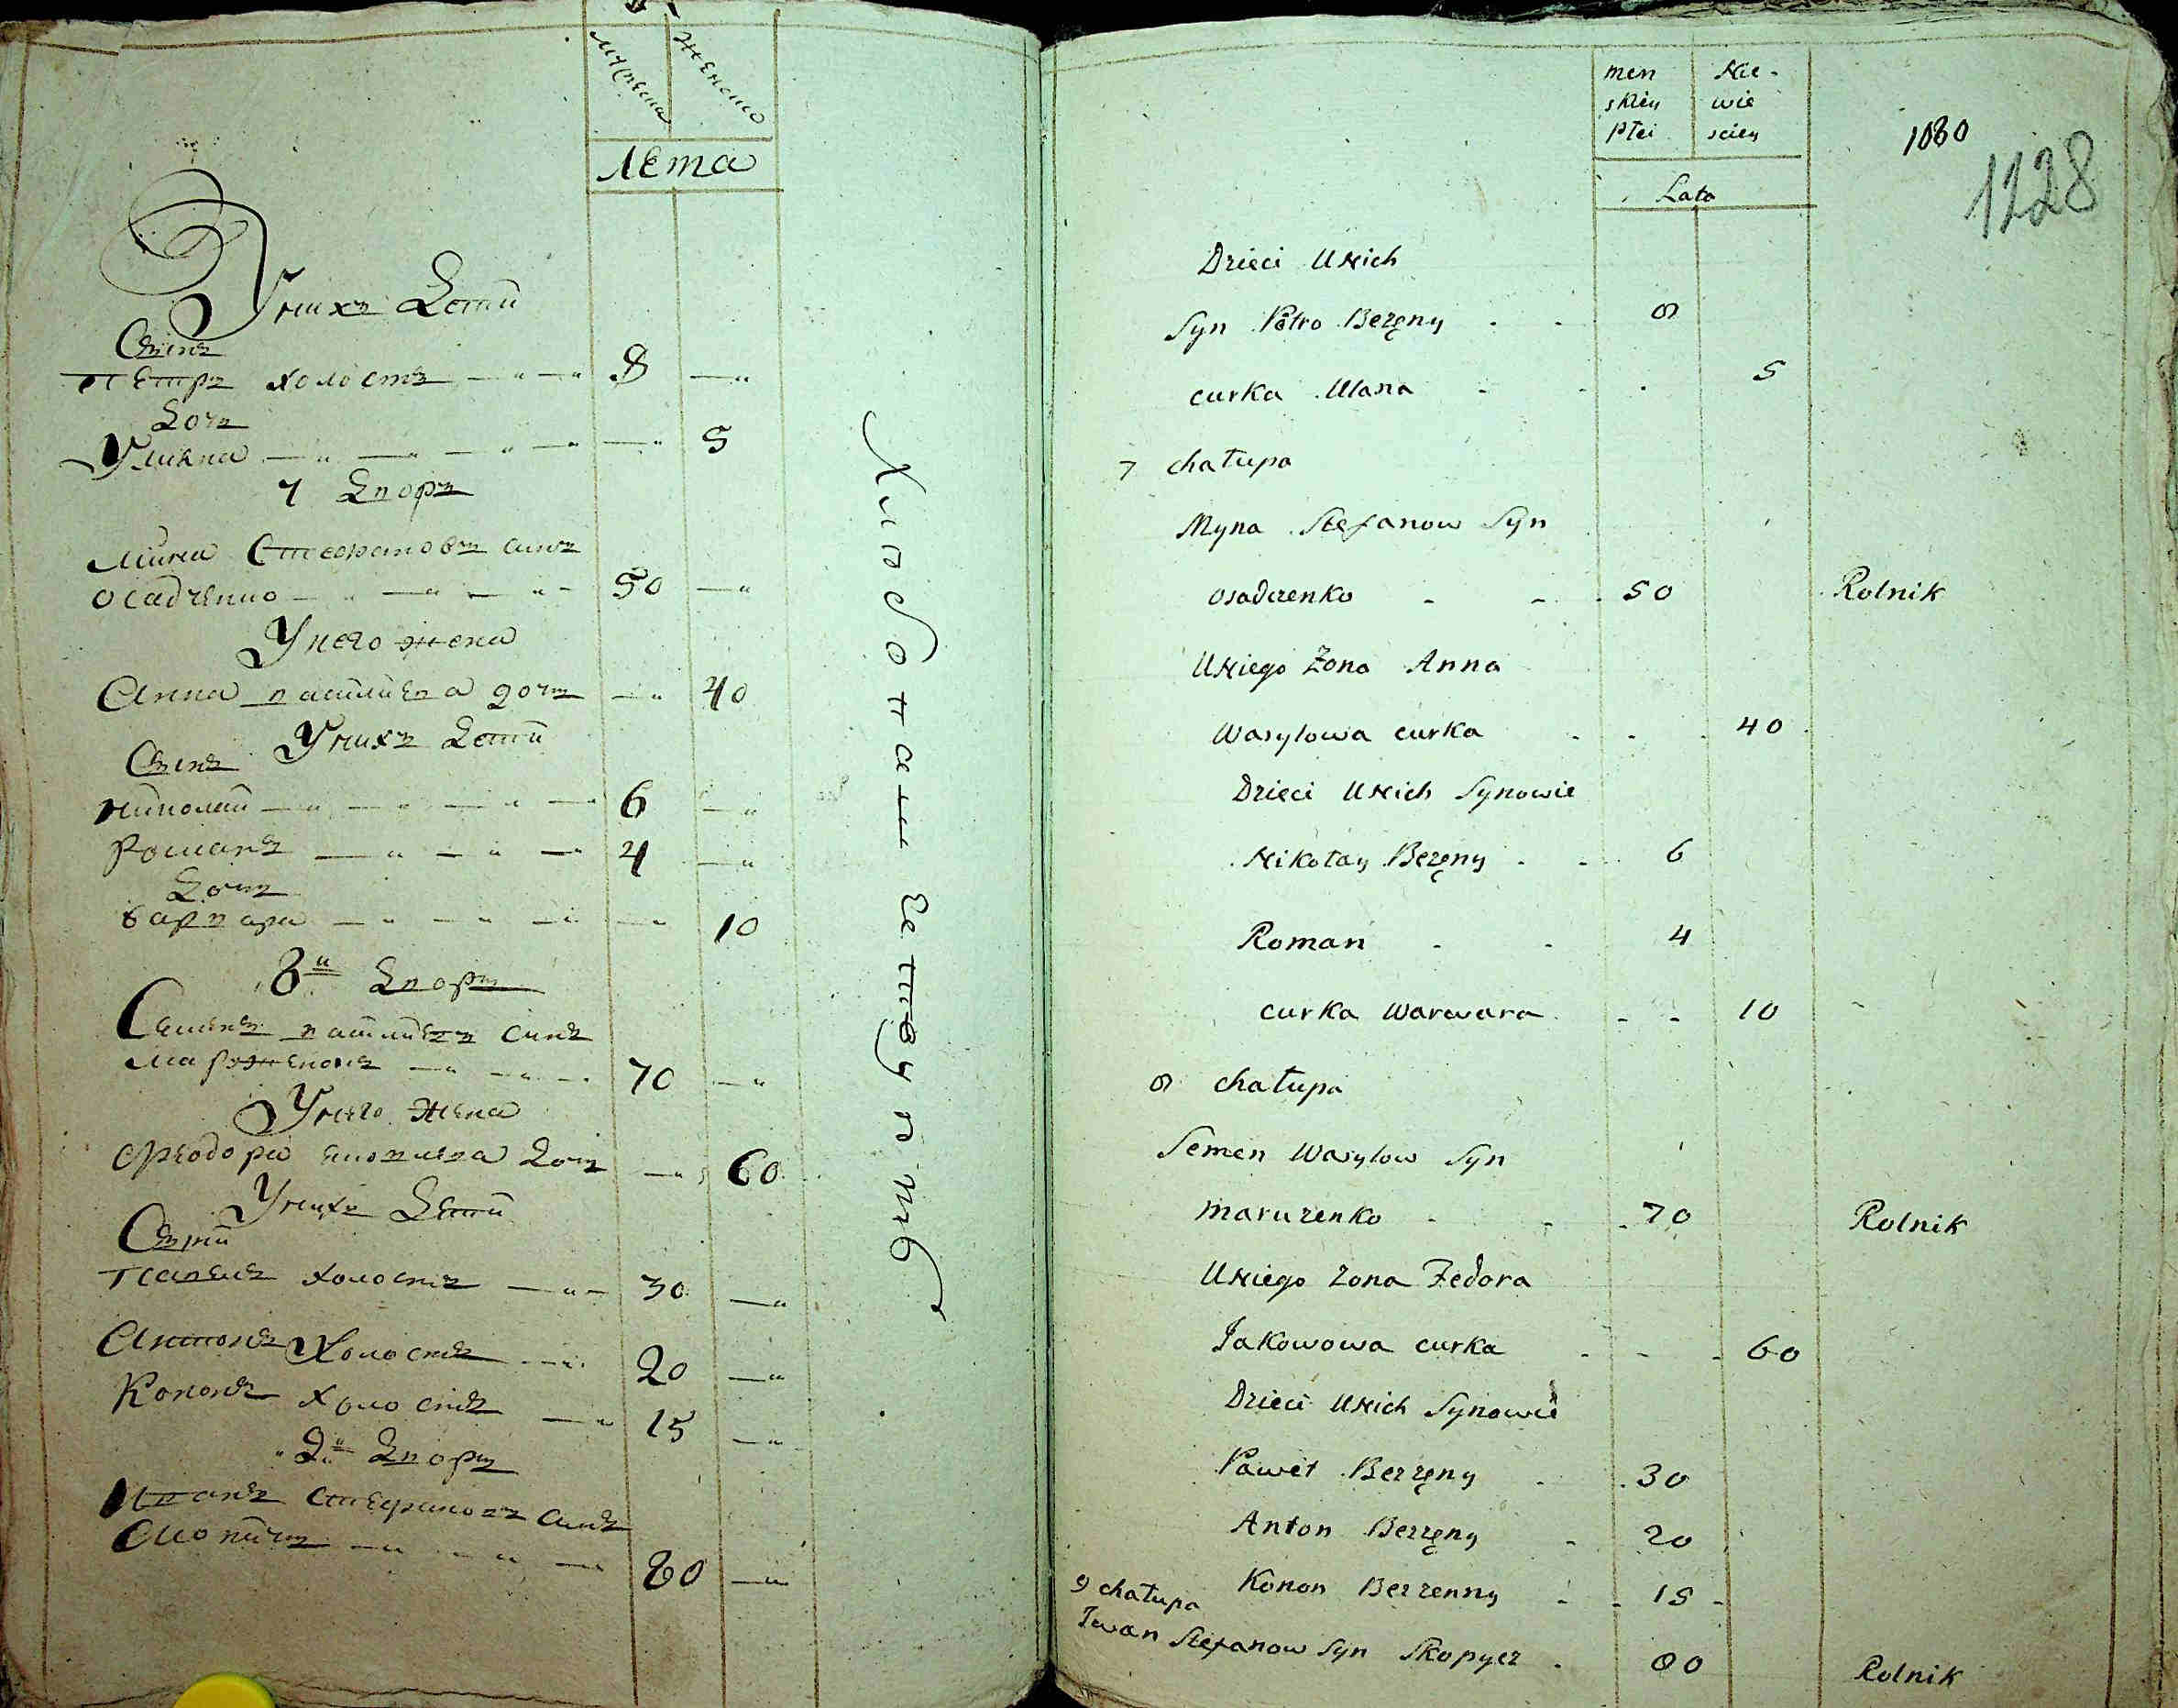 мужеска
женско
лета
У них детй
Сынъ
Петръ холостъ 8
Дочъ
Улияна 5
7 Дворъ
Мина Стефановъ синъ
Осадченко 50
У него жена
Анна васильева дочъ 40
У них детй
Сынъ
Николай 6
Романъ 4
Дочъ
Варвара 10
8й Дворъ
Семенъ васильевъ синъ
70
У него жена
Феодора дочъ 60
У них детй
Сыны
Павелъ холостъ 30
Антонъ холостъ 20
Кононъ холостъ 15
Дворъ
Иванъ Стефановъ синъ
80
Хлебопашествують
men Nie-
skiey wie
Płci sciey
1080
1228
Lata
Dzieci U Nich
Syn Petro Bezęny 8
curka Ulana 5
7 chałupa
Myna Stefanow Syn
osadczenko 50 Rolnik
U Niego Żona Anna
Wasylowa curka 40
Dzieci U Nich Synowie
Nikołay Bezęny 6
Roman 4
curka Warwara 10
8 chałupa
Semen Wasylow Syn
maruzenko 70 Rolnik
U Niego zona Fedora
Jakowowa curka 60
Dzieci U Nich Synowie
Paweł Bezzęny 30
Anton Bezzęny 20
Konon Bezzenny 15
9 chałupa
Iwan Stefanow Syn Skopycz 80 Rolnik